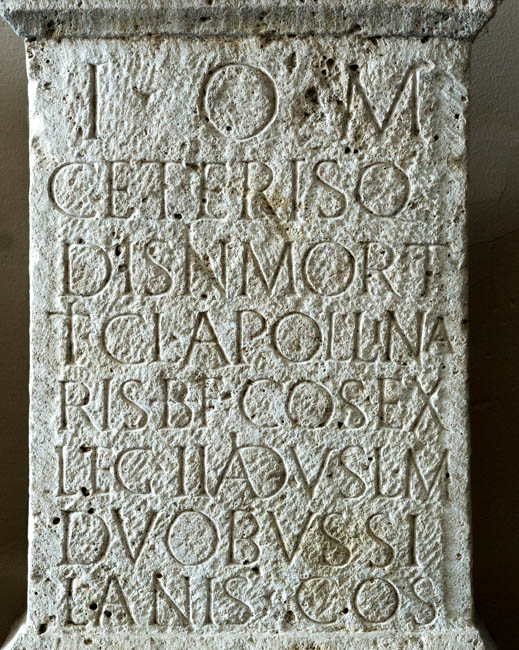 I · O · M
CETERISQ
DISN MORT
T·CLAPOLLINA
RIS BF COS EX
LEG II AD V S L M
DVOBVS SI
LANIS COS